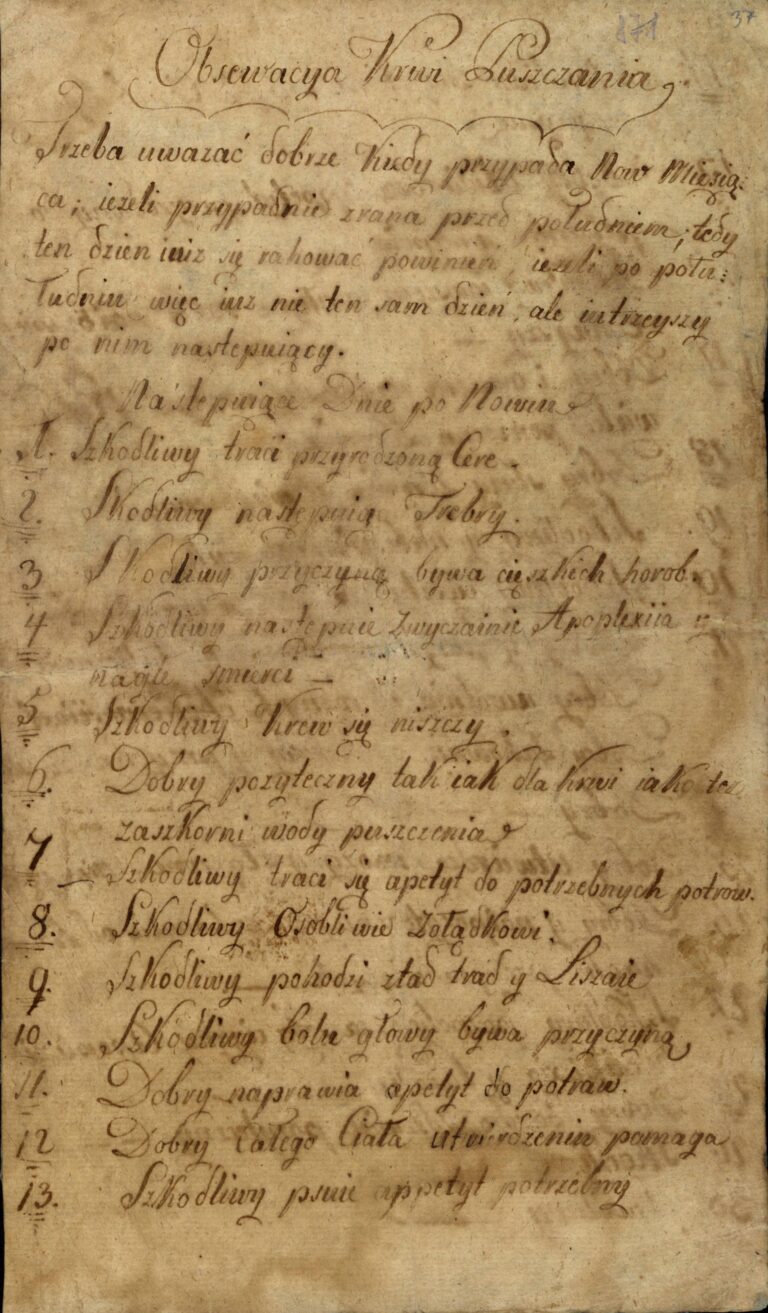 871 37
Obserwacyja Krwi Puszczania
Trzeba uwazać dobrze Kiedy przypada Now Miesią:
ca; iezeli przypadnie zrana przed południem, tedy
ten dzien iuz się rahować powinień iezeli po połu:
łudniu więc iuz nie ten sam dzień, ale iutrzeyszy
po nim nastepuiący.
Nastepuiące Dnie po Nowiu
1. Szkodliwy traci przyrodzoną Cere.
2. Skodliwy nastepuią Frebry.
3 Skodliwy przyczyną bywa cięszkich horob.
4 Szkodliwy nastepuie Zwyczainie Apoplexiia y
nagle smierci
5 Szkodliwy Krew się niszczy.
6. Dobry pozyteczny tak iak dla krwi iako tez
zaszkorni wody puszczenia
7 Szkodliwy traci się apetyt do potrzebnych potrow.
8. Szkodliwy Osobliwie Zołądkowi.
9. Szkodliwy pohodzi ztad trad y Liszaie
10. Szkodliwy bolu głowy bywa przyczyną,
11. Dobry naprawia apetyt do potraw.
12 Dobry Całego Ciała utwirdzeniu pamaga
13. Szkodliwy psuie appetyt potrzebny